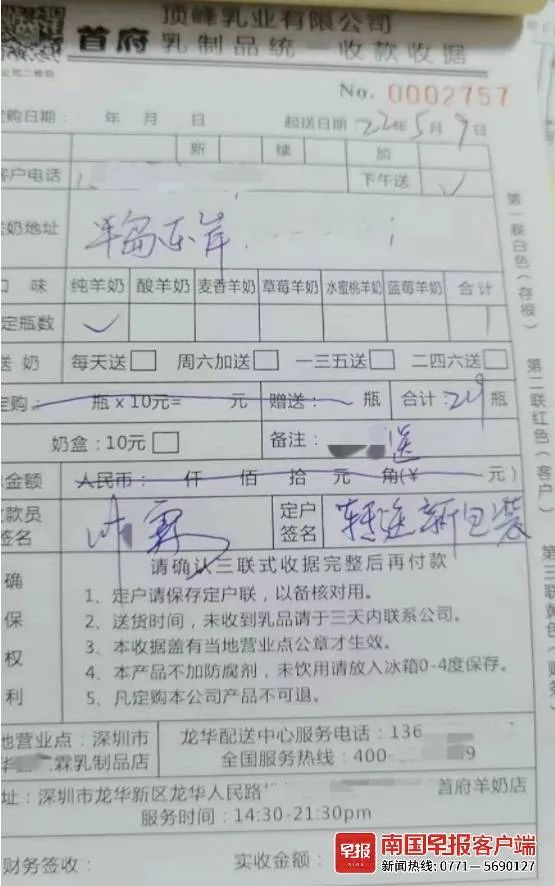 首府 顶峰乳业有限公司
乳制品统一收款收据
No. 0002757
购日期： 年 月 日 起送日期：22年5月9日
新 续 加
客户电话 下午送 ✓
送奶地址 半岛东岸
口味 纯羊奶 酸羊奶 麦香羊奶 草莓羊奶 水蜜桃羊奶 蓝莓羊奶 合计
定瓶数 ✓
送奶 每天送□ 周六加送□ 一三五送□ 二四六送□
定购： 瓶x10元= 元 赠送： 瓶 合计：29瓶
奶盒：10元□ 备注： 送
总金额 人民币： 仟 佰 拾 元 角(¥ 元)
收款员签名 定户签名 转送新包装
请确认三联式收据完整后再付款
确保权利
1、定户请保存定户联，以备核对用。
2、送货时间，未收到乳品请于三天内联系公司。
3、本收据盖有当地营业点公章才生效。
4、本产品不加防腐剂，未饮用请放入冰箱0-4度保存。
5、凡定购本公司产品不可退。
地营业点：深圳市 龙华配送中心服务电话：136
霖乳制品店 全国服务热线：400- 9
址：深圳市龙华新区龙华人民路 首府羊奶店
服务时间：14:30-21:30pm
财务签收： 实收金额：
第一联白色(存根)
第二联红色(客户)
第三联黄色(财务)
早报 南国早报客户端
新闻热线：0771—5690127